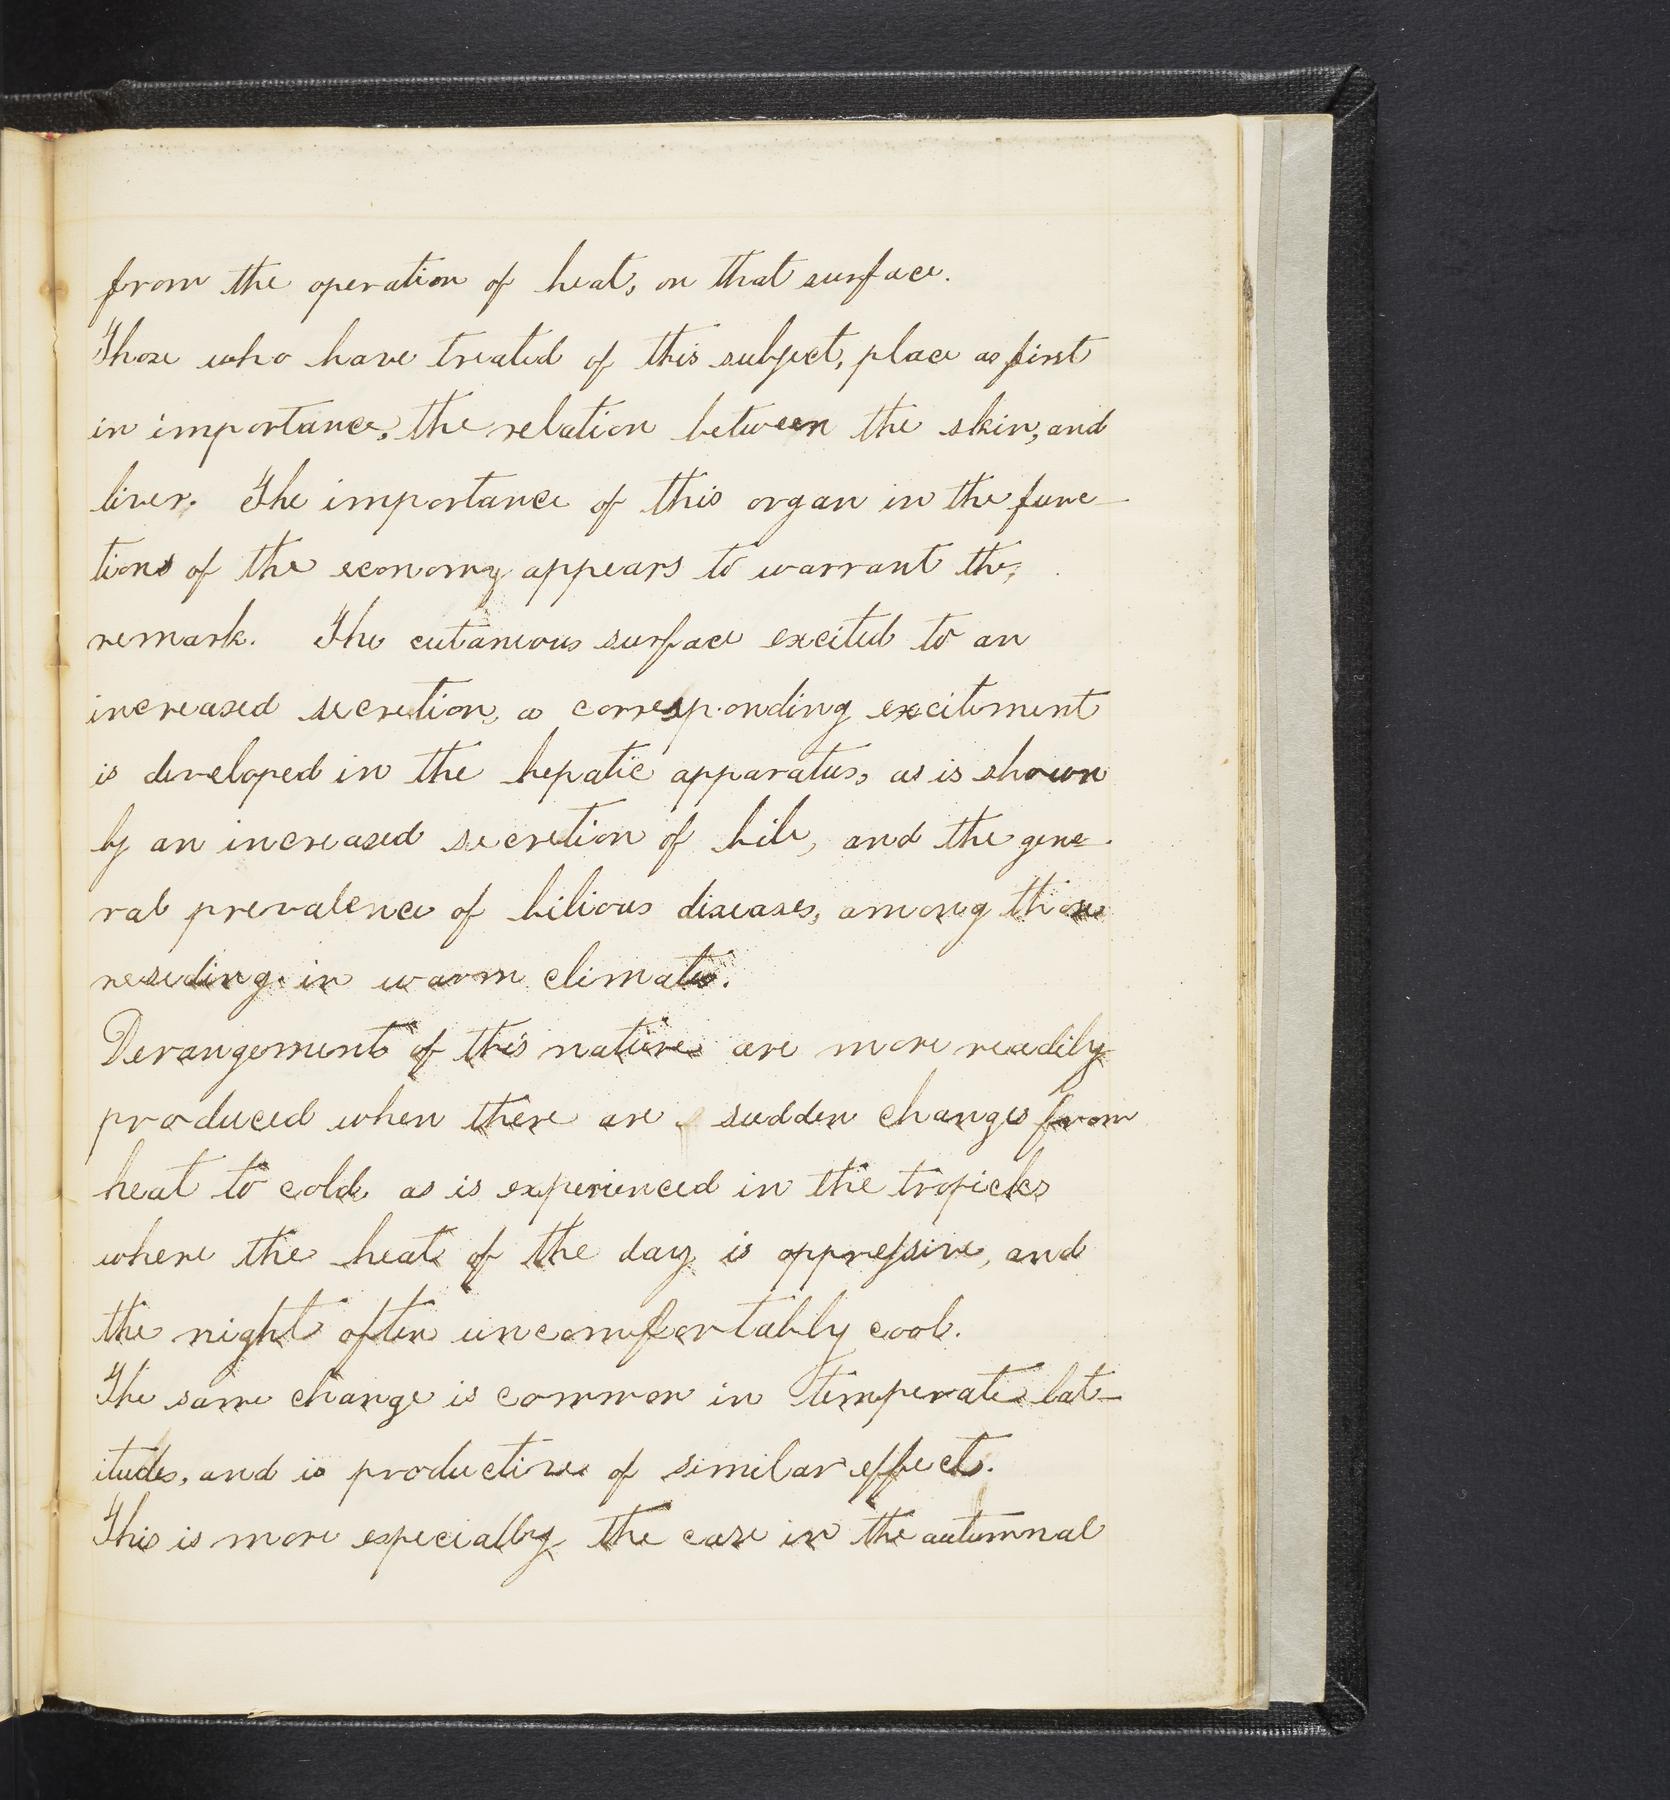 from the operation of heat, on that surface.
Those who have treated of this subject, place as first
in importance, the relation between the skin, and
liver. The importance of this organ in the func-
tions of the economy appears to warrant the
remark. The cutaneous surface excited to an
increased secretion, a corresponding excitement
is developed in the hepatic apparatus, as is shown
by an increased secretion of bile, and the gene-
ral prevalence of bilious diseases, among those
residing in warm climates.
Derangement of this nature are more readily
produced when there are sudden changes from
heat to cold, as is experienced in the tropicks
where the heat of the day is oppressive, and
the night often uncomfortably cool.
The same change is common in temperate lat-
itudes, and is productive of similar effect.
This is more especially the case in the autumnal